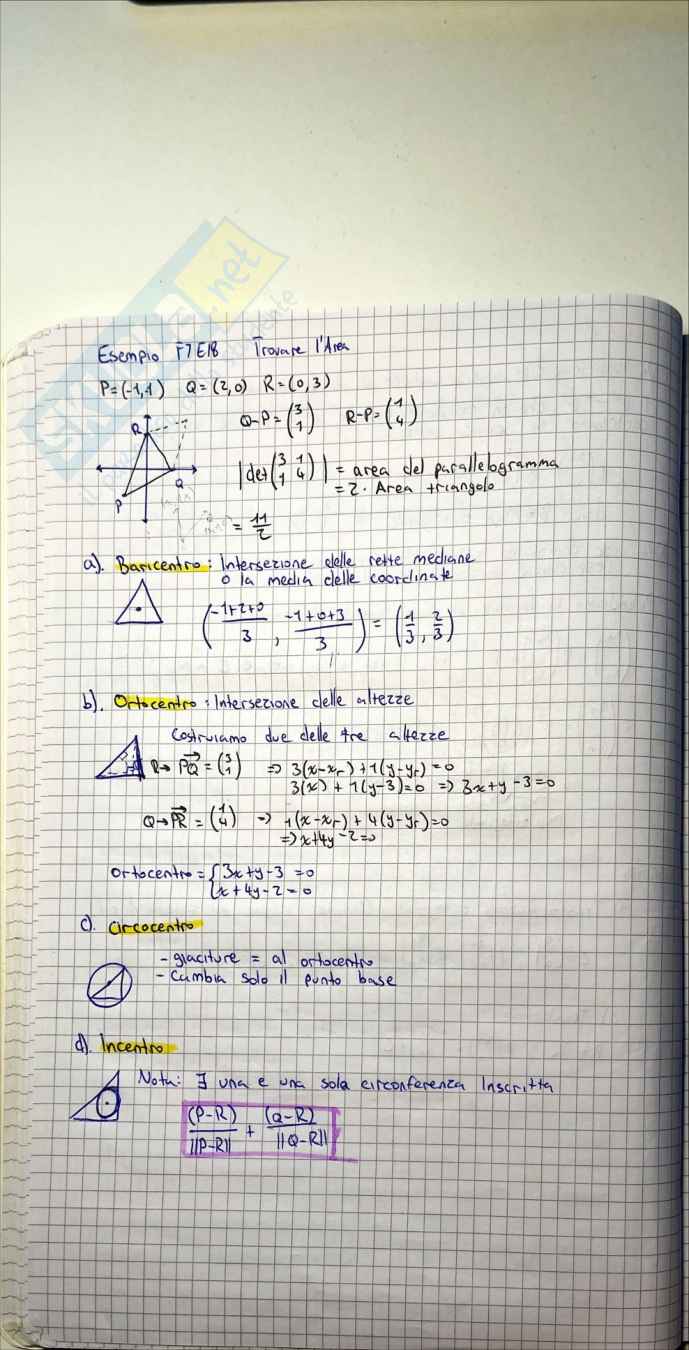 SKUOLA.net
Esempio F7E18 Trovare l'Area
P=(-1,-1) Q=(2,0) R=(0,3)
Q-P=(3 1) R-P=(1 4)
R
Q
P
|det(3 1 1 4)| = area del parallelogramma
= 2· Area triangolo
= 11/2
a). Baricentro: Intersezione delle rette mediane
o la media delle coordinate
((-1+2+0)/3, (-1+0+3)/3) = (1/3, 2/3)
b). Ortocentro: Intersezione delle altezze
Costruiamo due delle tre altezze
R→ PQ = (3 1) ⇒ 3(x-xr)+1(y-yr)=0
3(x)+1(y-3)=0 ⇒ 3x+y-3=0
Q→PR = (1 4) ⇒ 1(x-xr)+4(y-yr)=0
⇒x+4y-2=0
Ortocentro = {3x+y-3=0
x+4y-2=0
c). Circocentro
- giaciture = al ortocentro
- Cambia solo il punto base
d). Incentro
Nota: ∃ una e una sola circonferenza Inscritta
(P-R)/||P-R|| + (Q-R)/||Q-R||